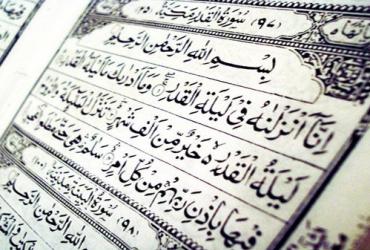 (٩٧) سُوْرَةُ الْقَدْرِ مَكِّيَّةٌ (٢٥)
بِسْمِ اللهِ الرَّحْمٰنِ الرَّحِيْمِ
اِنَّاۤ اَنْزَلْنٰهُ فِيْ لَيْلَةِ الْقَدْرِ وَمَاۤ اَدْرٰىكَ مَا لَيْلَةُ الْقَدْرِ
لَيْلَةُ الْقَدْرِ خَيْرٌ مِّنْ اَلْفِ شَهْرٍ تَنَزَّلُ الْمَلٰٓئِكَةُ وَالرُّوْحُ
فِيْهَا بِاِذْنِ رَبِّهِمْ مِّنْ كُلِّ اَمْرٍ سَلٰمٌ هِيَ حَتّٰى
(٩٨) سُوْرَةُ الْبَيِّنَةِ (١٠٠)
بِسْمِ اللهِ الرَّحْمٰنِ الرَّحِيْمِ